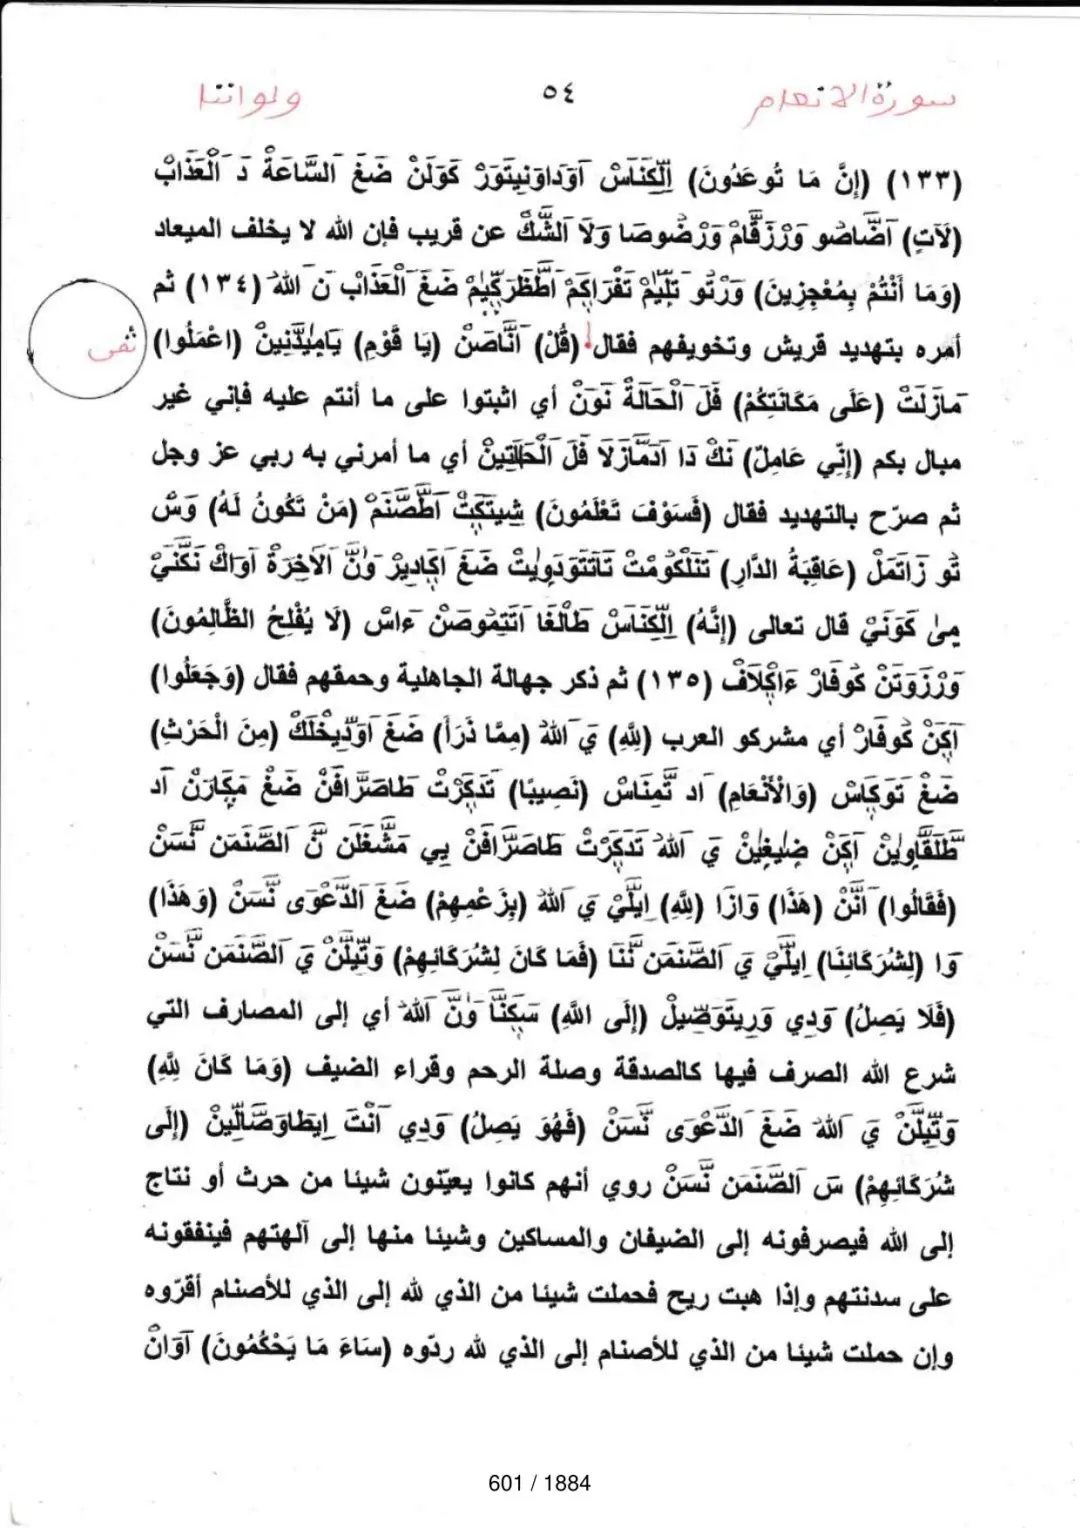 سورة الانعام ٥٤ ولواننا
(١٣٣) (إِنَّ مَا تُوعَدُونَ) إِلْكَنَاسْ آوَداوَنِيتَورْ كَولَنْ ضَغَ السَّاعَةْ دَ الْعَذَابْ
(لَآتٍ) آضَّاضُو وَرْزَقَّامْ وَرْضُوصَا وَلَا الشَّكْ عن قريب فإن الله لا يخلف الميعاد
(وَمَا أَنْتُمْ بِمُعْجِزِينَ) وَرْتُو تِلِّيمْ تَفْرَاكِمْ اَطَّظَرَكِّيمْ ضَغَ الْعَذَابْ نَ اللهْ (١٣٤) ثم
أمره بتهديد قريش وتخويفهم فقال (قُلْ) آنَّاصَنْ (يَا قَوْمِ) يَامِيدَّنِينْ (اعْمَلُوا)
ثفى
مَازَلَتْ (عَلَى مَكَانَتِكُمْ) فَلَ الْحَالَةْ نَوَنْ أي اثبتوا على ما أنتم عليه فإني غير
مبال بكم (إِنِّي عَامِلٌ) نَكْ دَا آدَمَّازَلَا فَلَ الْحَالَتِينْ أي ما أمرني به ربي عز وجل
ثم صرّح بالتهديد فقال (فَسَوْفَ تَعْلَمُونَ) شِيتَكِتْ اَطَّصَّنَمْ (مَنْ تَكُونُ لَهُ) وَسْ
تُو زَاتَمَلْ (عَاقِبَةُ الدَّارِ) تَنَلْكَومْتْ تَاتَتَودَوِيتْ ضَغَ اَكَادِيرْ وَنَّ الْآخِرَةْ آوَاكْ نَكَنَيْ
مِى كَوَنَيْ قال تعالى (إِنَّهُ) إِلْكَنَاسْ طَالْغَا اَتِّمُوصَنْ ءَاسْ (لَا يُفْلِحُ الظَّالِمُونَ)
وَرْزَوَتَنْ كُوفَارْ ءَاكِلَافْ (١٣٥) ثم ذكر جهالة الجاهلية وحمقهم فقال (وَجَعَلُوا)
آكِنْ كُوفَارْ أي مشركو العرب (لِلَّهِ) يَ اللهْ (مِمَّا ذَرَأَ) ضَغَ آوَدِّيخْلَكْ (مِنَ الْحَرْثِ)
ضَغْ تَوكَاسْ (وَالْأَنْعَامِ) آد تَّمِنَاسْ (نَصِيبًا) تَدَكِرْتْ طَاصَرَّافَنْ ضَغْ مَكَارَنْ آد
ظَلَقَّاوِينْ آكِنْ ضِلِيغِينْ يَ اللهْ تَدَكِرْتْ طَاصَرَّافَنْ يِي مَشَّغَلَن نَّ الصَّنَمَن نَّسَنْ
(فَقَالُوا) اَنَّنْ (هَذَا) وَازَا (لِلَّهِ) اِيلَيْ يَ اللهْ (بِزَعْمِهِمْ) ضَغَ الدَّعْوَى نَّسَنْ (وَهَذَا)
وَا (لِشُرَكَائِنَا) اِيلَيْ يَ الصَّنَمَن نَّنَا (فَمَا كَانَ لِشُرَكَائِهِمْ) وَتِّيلَنْ يَ الصَّنَمَن نَّسَنْ
(فَلَا يَصِلُ) وَدِي وَرِيتَوَصِّيلْ (إِلَى اللَّهِ) سَكِنَّا وَنَّ اللهْ أي إلى المصارف التي
شرع الله الصرف فيها كالصدقة وصلة الرحم وقراء الضيف (وَمَا كَانَ لِلَّهِ)
وَتِّيلَنْ يَ اللهْ ضَغَ الدَّعْوَى نَّسَنْ (فَهُوَ يَصِلُ) وَدِي اَنْتَ اِيطَاوَصَّالِينْ (إِلَى
شُرَكَائِهِمْ) سَ الصَّنَمَن نَّسَنْ روي أنهم كانوا يعيّنون شيئا من حرث أو نتاج
إلى الله فيصرفونه إلى الضيفان والمساكين وشيئا منها إلى آلهتهم فينفقونه
على سدنتهم وإذا هبت ريح فحملت شيئا من الذي لله إلى الذي للأصنام أقرّوه
وإن حملت شيئا من الذي للأصنام إلى الذي لله ردّوه (سَاءَ مَا يَحْكُمُونَ) آوَانْ
601 / 1884